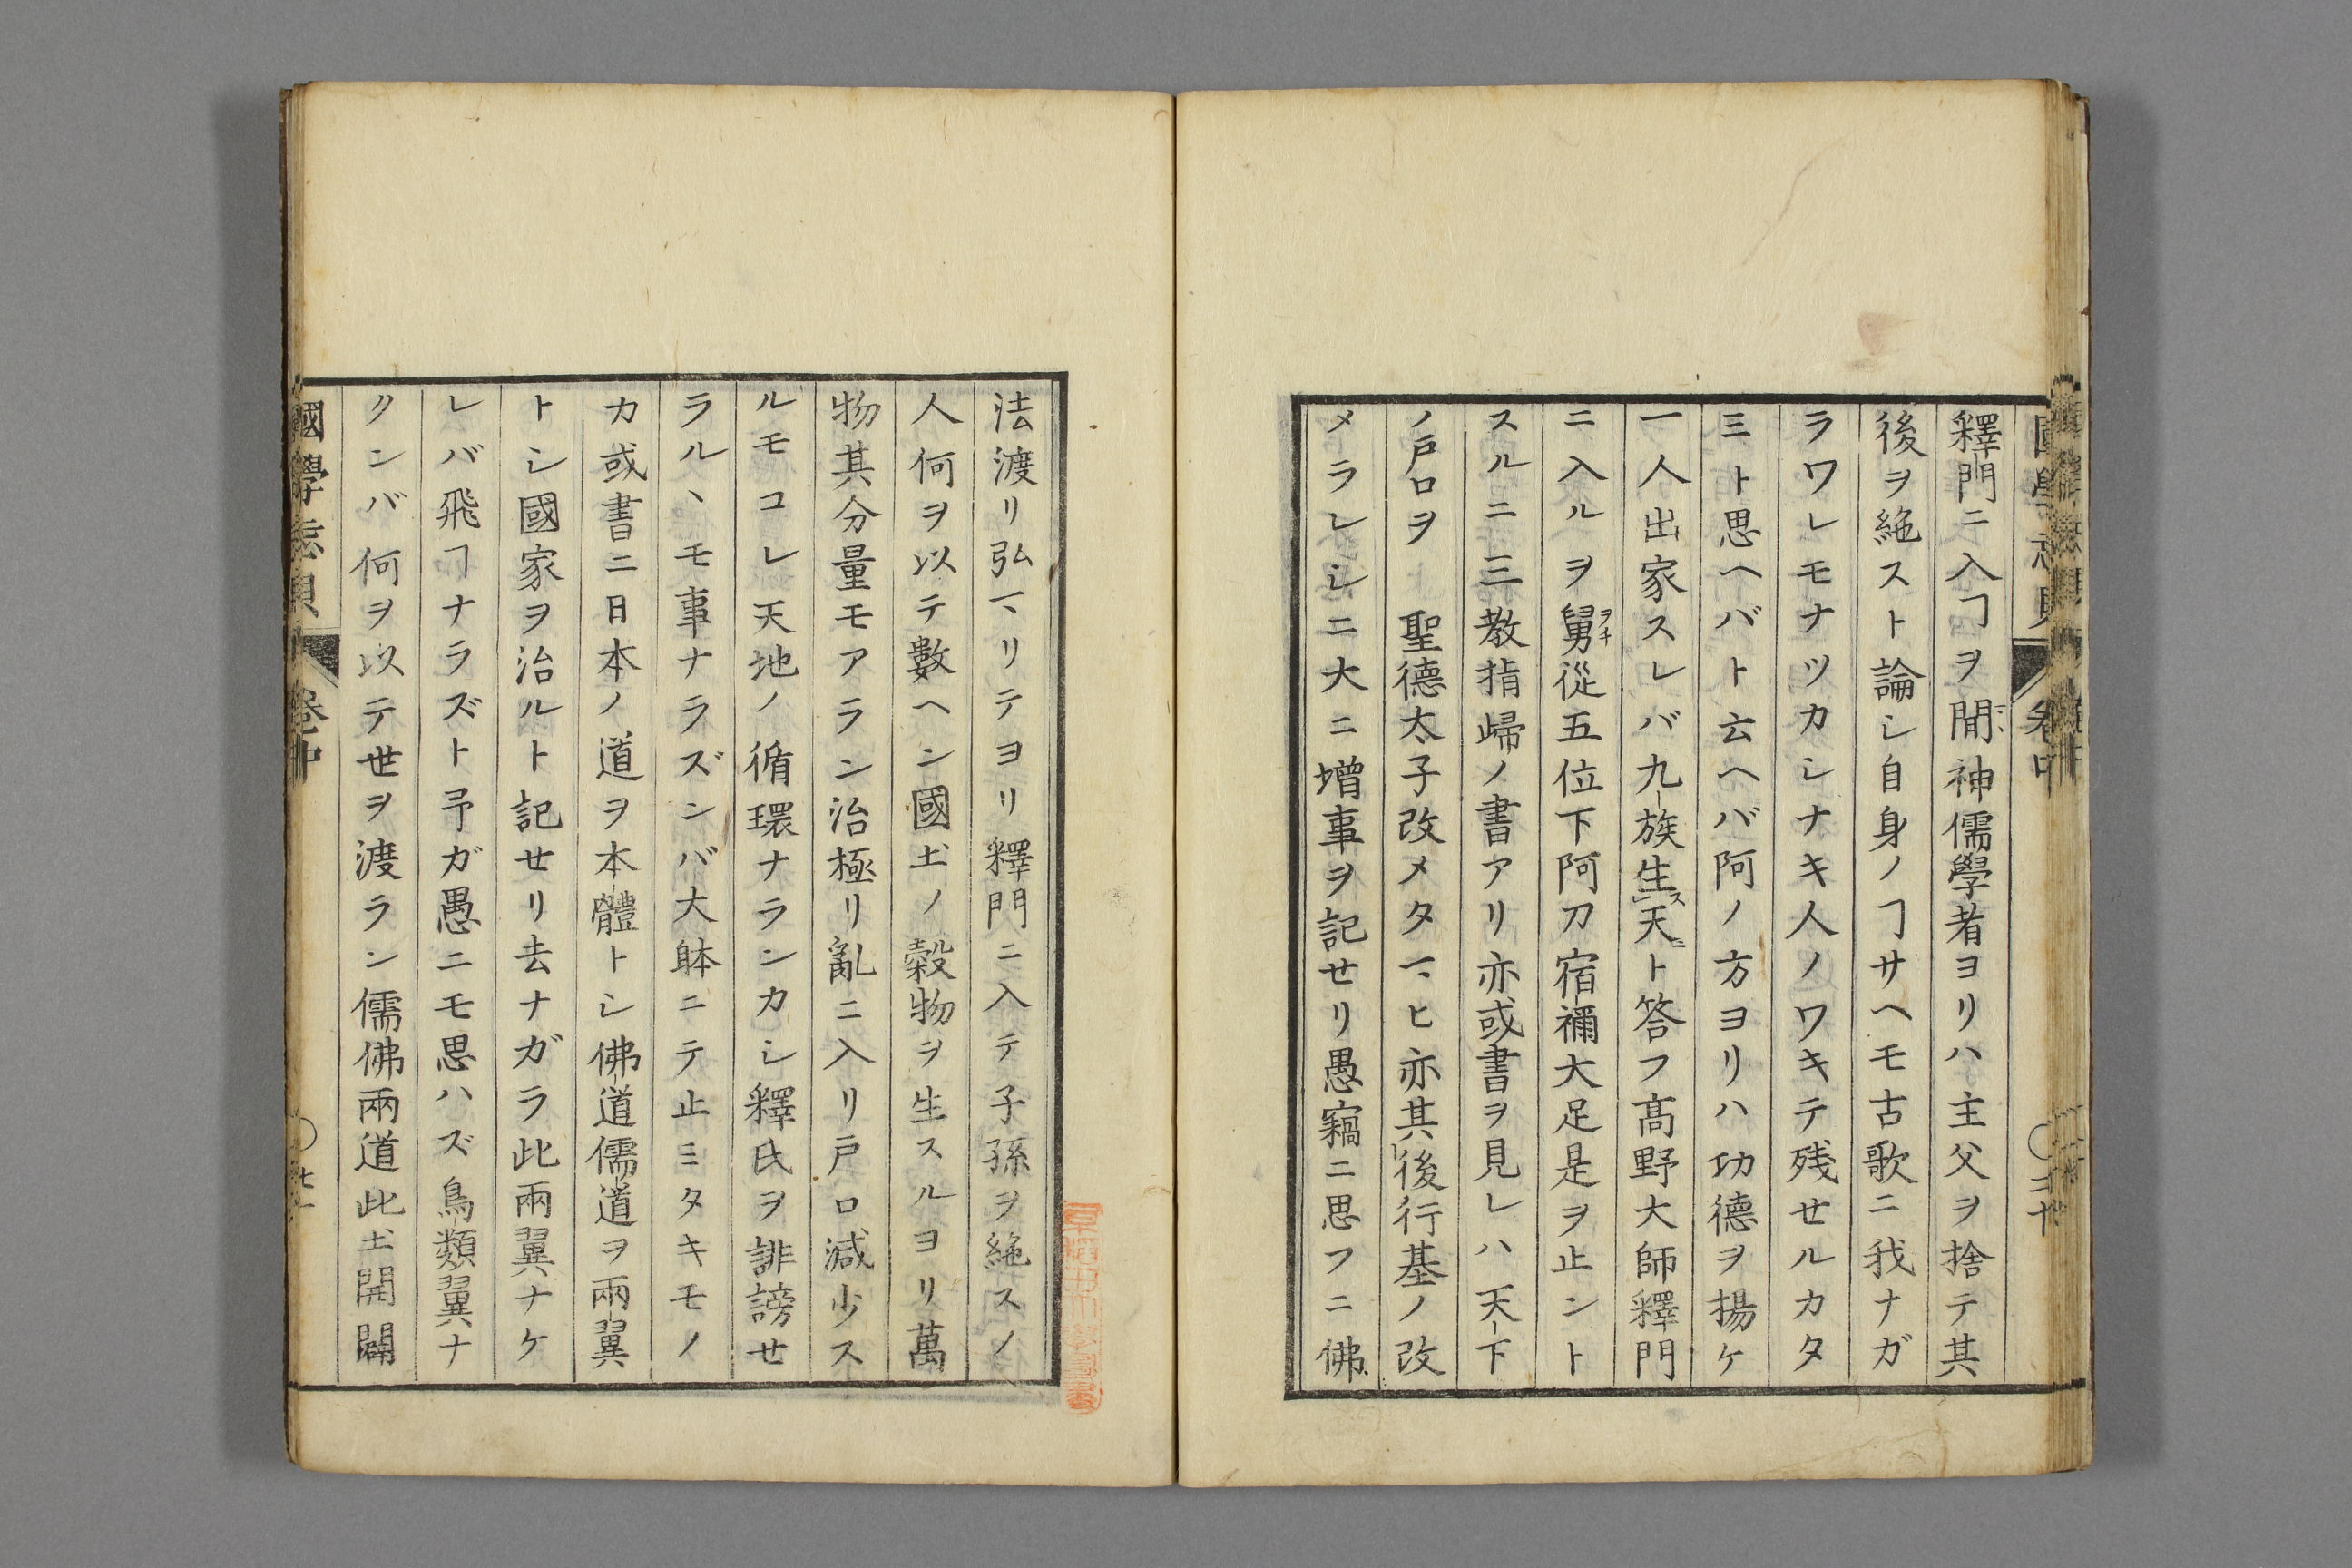 釋門ニ入ヿヲ聞神儒學者ヨリハ主父ヲ捨テ其
後ヲ絶スト論シ自身ノヿサヘモ古歌ニ我ナガ
ラワレモナツカシナキ人ノワキテ残セルカタ
ミト思ヘバト云ヘバ阿ノ方ヨリハ功德ヲ揚ケ
一人出家スレバ九族生ス天ニト答フ高野大師釋門
ニ入ルヲ舅ヲチ從五位下阿刀宿禰大足是ヲ止ント
スルニ三教指歸ノ書アリ亦或書ヲ見レハ天下
ノ戸口ヲ　聖德太子改メタマヒ亦其後行基ノ改
メラレシニ大ニ增事ヲ記セリ愚竊ニ思フニ佛
法渡リ弘マリテヨリ釋門ニ入テ子孫ヲ絶スノ
人何ヲ以テ數ヘン國土ノ穀物ヲ生スルヨリ萬
物其分量モアラン治極リ亂ニ入リ戸口減少ス
ルモコレ天地ノ循環ナランカシ釋氏ヲ誹謗セ
ラルヽモ事ナラズンバ大躰ニテ止ミタキモノ
カ或書ニ日本ノ道ヲ本體トシ佛道儒道ヲ兩翼
トシ國家ヲ治ルト記セリ去ナガラ此兩翼ナケ
レバ飛ヿナラズト予ガ愚ニモ思ハズ鳥類翼ナ
クンバ何ヲ以テ世ヲ渡ラン儒佛兩道此土開闢
國學忘貝
卷中